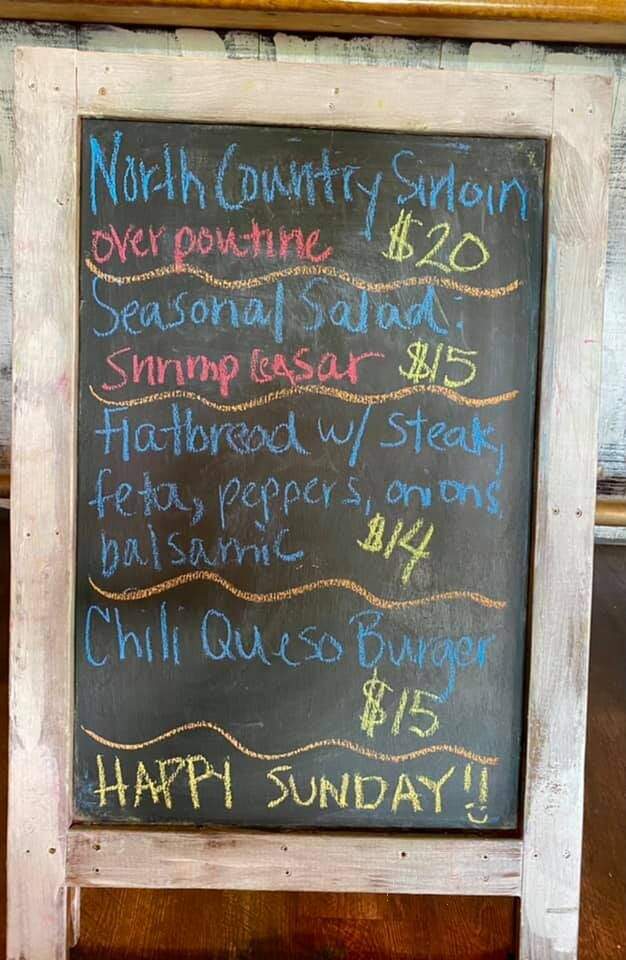 North Country Sirloin
over poutine $20
Seasonal Salad:
Shrimp Ceasar $15
Flatbread w/ steak,
feta, peppers, onions,
balsamic $14
Chili Queso Burger
$15
HAPPY SUNDAY!!